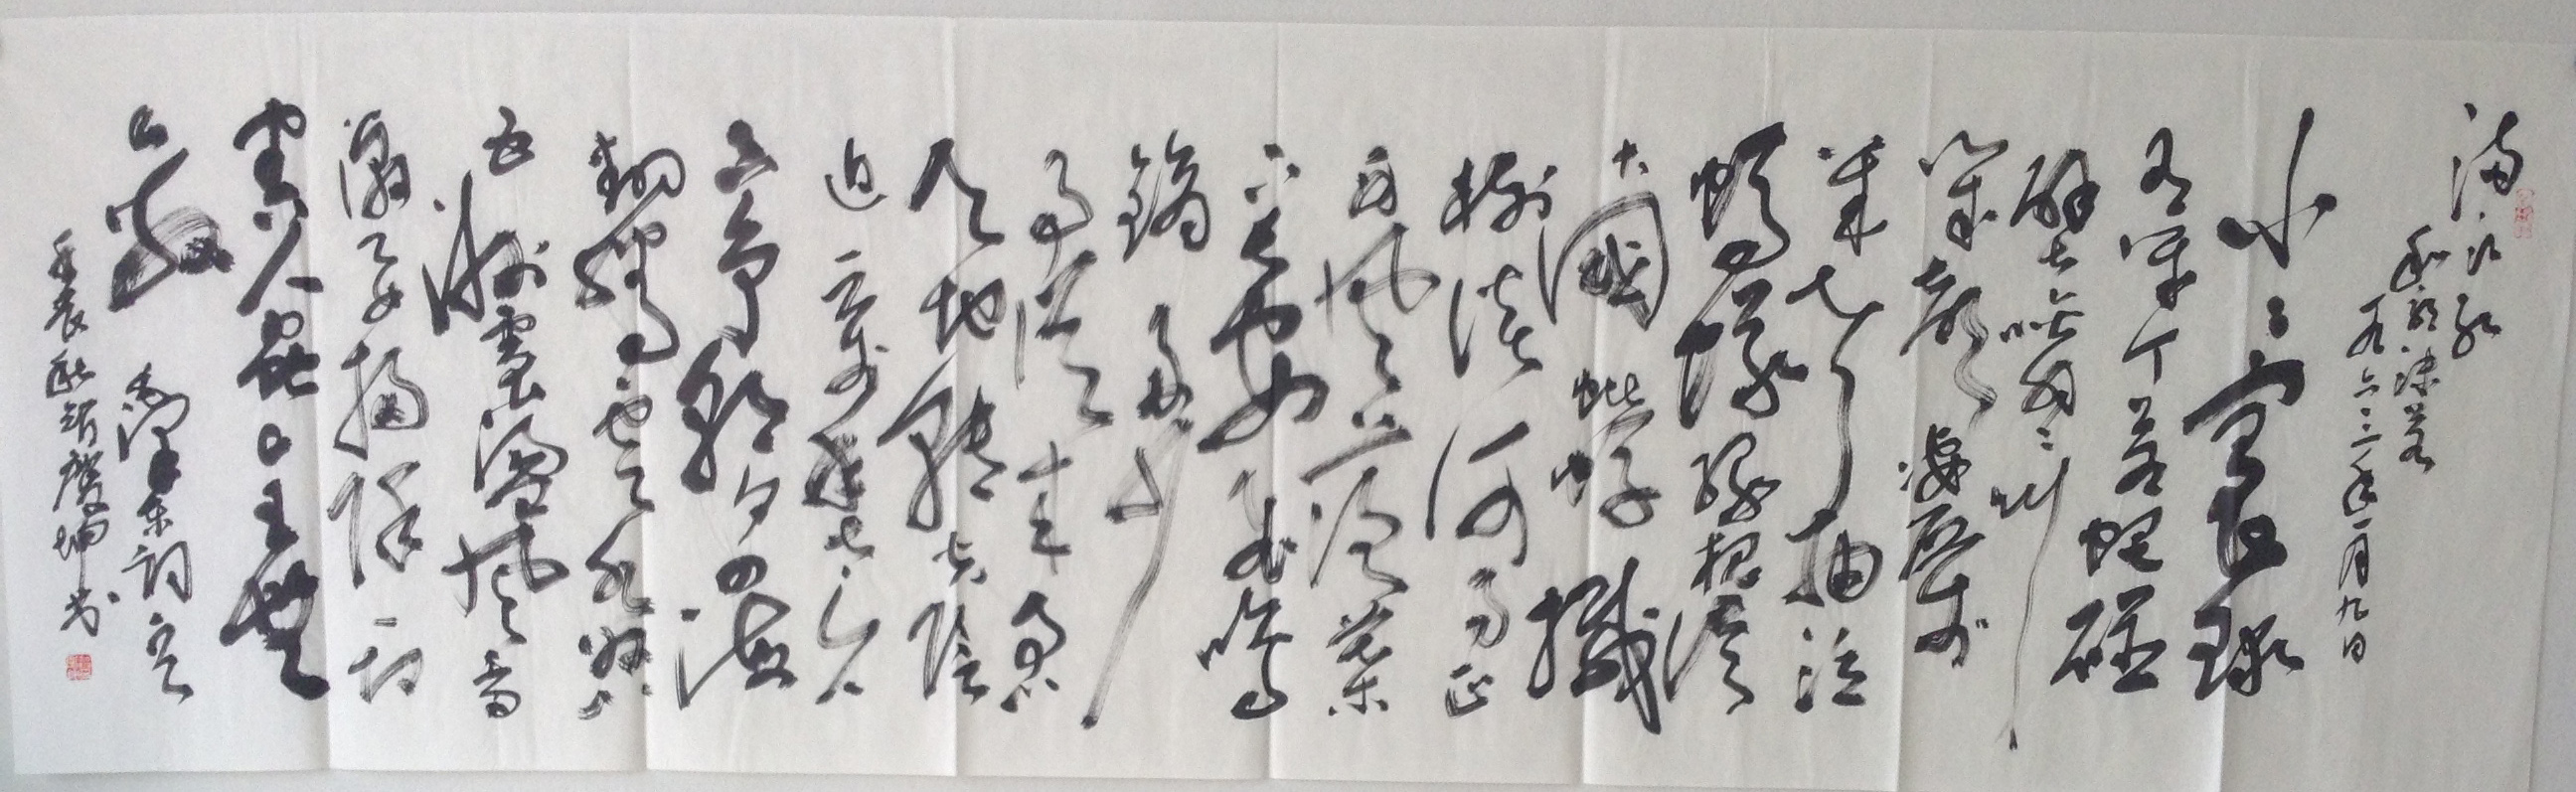 滿江红
和郭沫若
一九六三年一月九日
小小寰球
有几个苍蝇碰
壁嗡嗡叫
几声凄厉几
声抽泣
蚂蚁缘槐夸
大國蚍蜉撼
树谈何易正
西风落葉
下长安飞鸣
镝多少
事从来急
天地转光阴
迫一万年太久
只争朝夕四海
翻腾云水怒
五洲震荡风雷
激要扫除一切
害人虫全无
敌
毛泽东词
壬辰秋 庆坤书